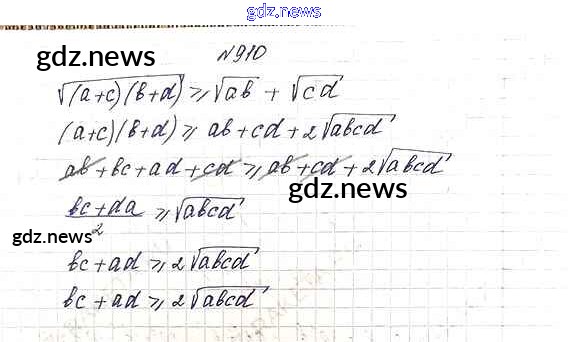 gdz.news
№910
gdz.news
√(a+c)(b+d) ⩾ √ab + √cd
(a+c)(b+d) ⩾ ab+cd+2√abcd
ab+bc+ad+cd ⩾ ab+cd+2√abcd
gdz.news
bc+da
2
⩾ √abcd
gdz.news
bc+ad ⩾ 2√abcd
bc+ad ⩾ 2√abcd